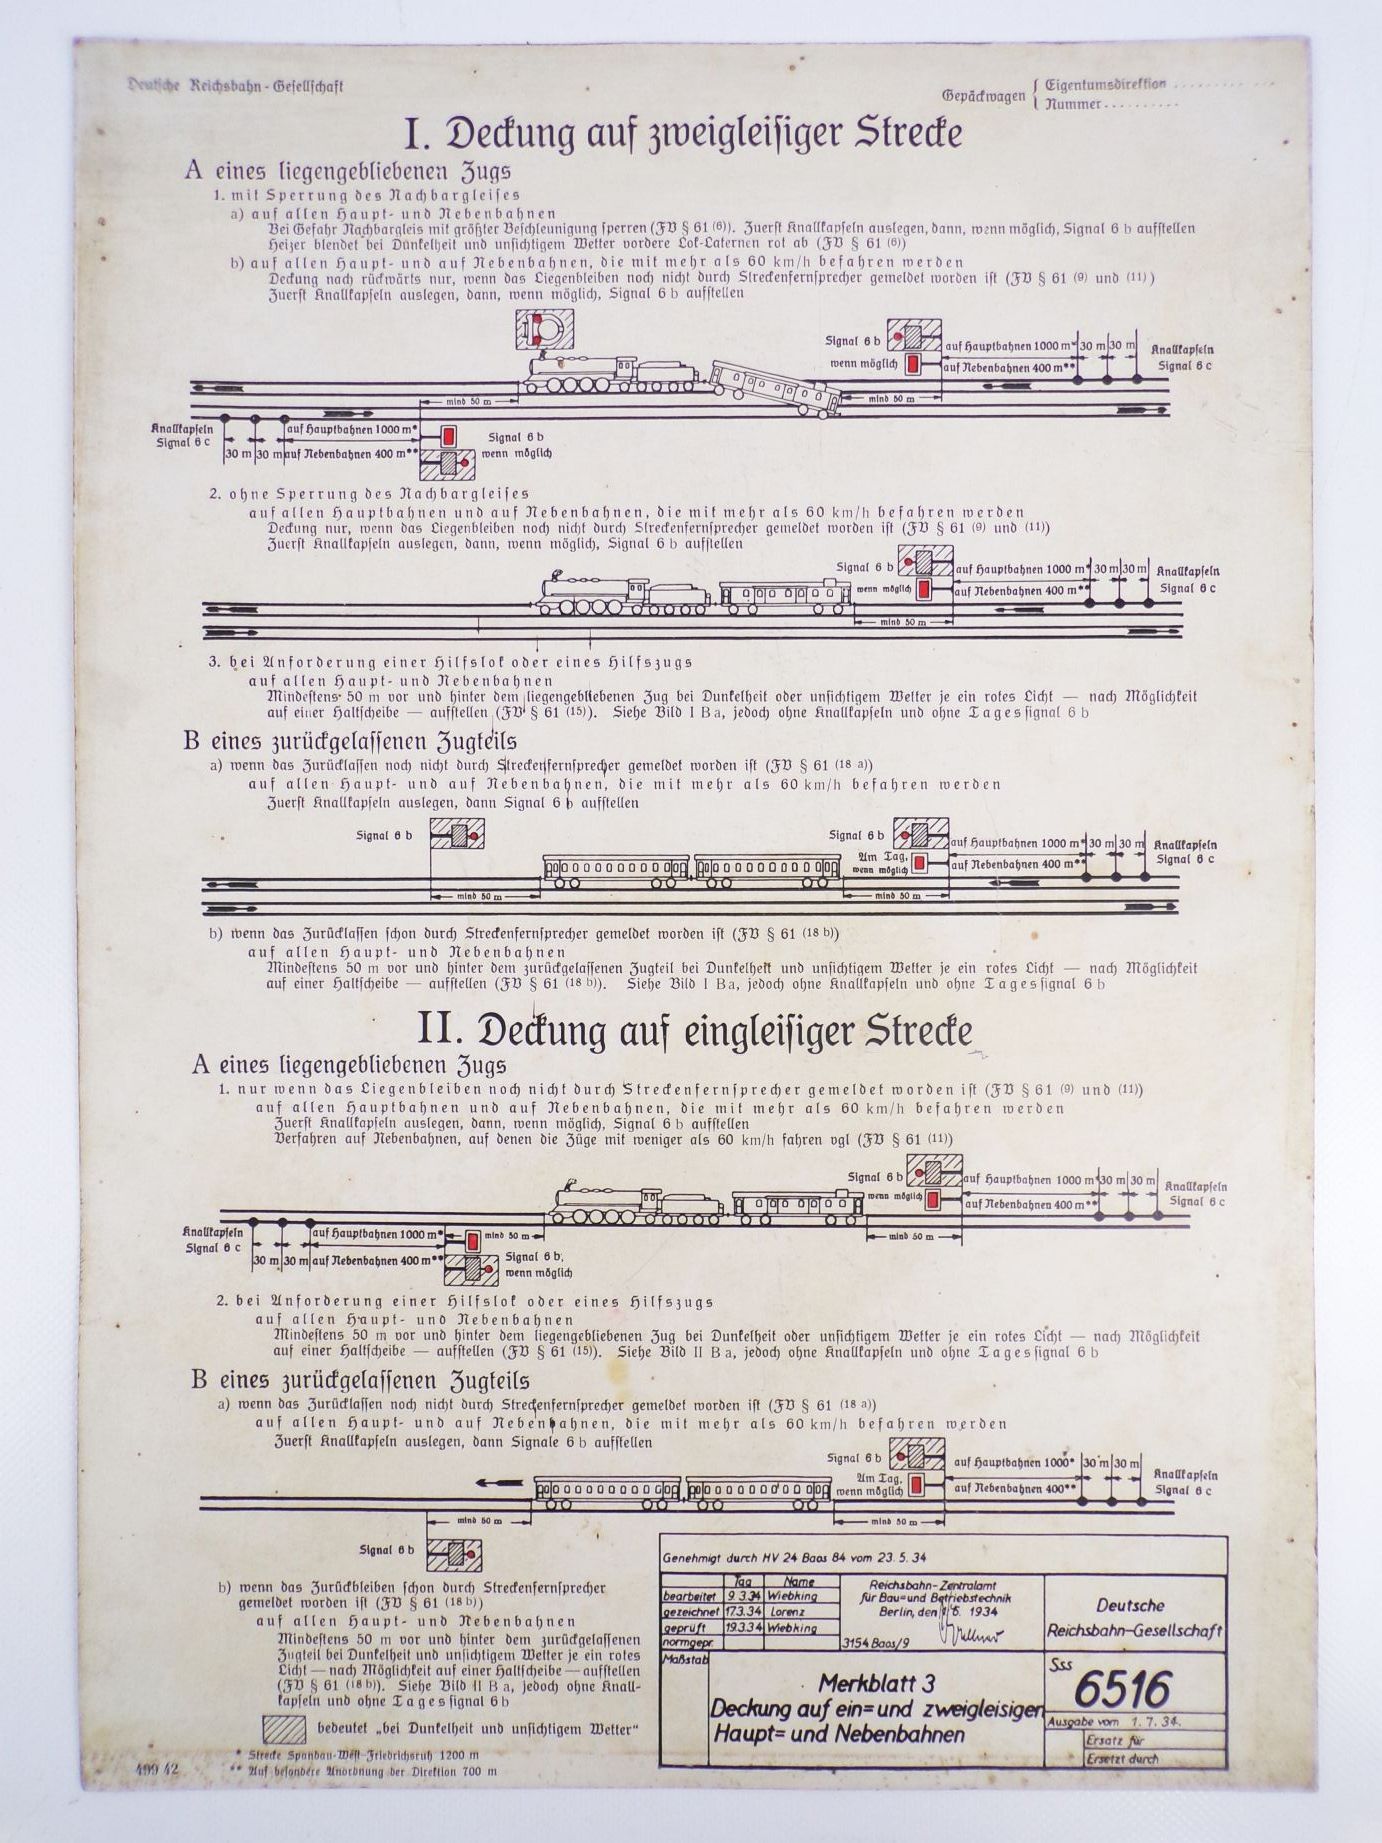 Deutsche Reichsbahn-Gesellschaft
Gepäckwagen { Eigentumsdirektion ..........
Nummer..........
I. Deckung auf zweigleisiger Strecke
A eines liegengebliebenen Zugs
1. mit Sperrung des Nachbargleises
a) auf allen Haupt- und Nebenbahnen
Bei Gefahr Nachbargleis mit größter Beschleunigung sperren (FV § 61 (6)). Zuerst Knallkapseln auslegen, dann, wenn möglich, Signal 6 b aufstellen
Heizer blendet bei Dunkelheit und unsichtigem Wetter vordere Lok-Laternen rot ab (FV § 61 (6))
b) auf allen Haupt- und auf Nebenbahnen, die mit mehr als 60 km/h befahren werden
Deckung nach rückwärts nur, wenn das Liegenbleiben noch nicht durch Streckenfernsprecher gemeldet worden ist (FV § 61 (9) und (11))
Zuerst Knallkapseln auslegen, dann, wenn möglich, Signal 6 b aufstellen
Signal 6 b
wenn möglich
auf Hauptbahnen 1000 m* 30 m 30 m
auf Nebenbahnen 400 m**
Knallkapseln
Signal 6 c
mind 50 m
mind 50 m
Knallkapseln
Signal 6 c
auf Hauptbahnen 1000 m*
30 m 30 m auf Nebenbahnen 400 m**
Signal 6 b
wenn möglich
2. ohne Sperrung des Nachbargleises
auf allen Hauptbahnen und auf Nebenbahnen, die mit mehr als 60 km/h befahren werden
Deckung nur, wenn das Liegenbleiben noch nicht durch Streckenfernsprecher gemeldet worden ist (FV § 61 (9) und (11))
Zuerst Knallkapseln auslegen, dann, wenn möglich, Signal 6 b aufstellen
Signal 6 b
wenn möglich
auf Hauptbahnen 1000 m* 30 m 30 m
auf Nebenbahnen 400 m**
Knallkapseln
Signal 6 c
mind 50 m
3. bei Anforderung einer Hilfslok oder eines Hilfszugs
auf allen Haupt- und Nebenbahnen
Mindestens 50 m vor und hinter dem liegengebliebenen Zug bei Dunkelheit oder unsichtigem Wetter je ein rotes Licht — nach Möglichkeit
auf einer Haltscheibe — aufstellen (FV § 61 (15)). Siehe Bild I Ba, jedoch ohne Knallkapseln und ohne Tagessignal 6 b
B eines zurückgelassenen Zugteils
a) wenn das Zurücklassen noch nicht durch Streckenfernsprecher gemeldet worden ist (FV § 61 (18 a))
auf allen Haupt- und auf Nebenbahnen, die mit mehr als 60 km/h befahren werden
Zuerst Knallkapseln auslegen, dann Signal 6 b aufstellen
Signal 6 b
Signal 6 b
Am Tag,
wenn möglich
auf Hauptbahnen 1000 m* 30 m 30 m
auf Nebenbahnen 400 m**
Knallkapseln
Signal 6 c
mind 50 m
mind 50 m
b) wenn das Zurücklassen schon durch Streckenfernsprecher gemeldet worden ist (FV § 61 (18 b))
auf allen Haupt- und Nebenbahnen
Mindestens 50 m vor und hinter dem zurückgelassenen Zugteil bei Dunkelheit und unsichtigem Wetter je ein rotes Licht — nach Möglichkeit
auf einer Haltscheibe — aufstellen (FV § 61 (18 b)). Siehe Bild I Ba, jedoch ohne Knallkapseln und ohne Tagessignal 6 b
II. Deckung auf eingleisiger Strecke
A eines liegengebliebenen Zugs
1. nur wenn das Liegenbleiben noch nicht durch Streckenfernsprecher gemeldet worden ist (FV § 61 (9) und (11))
auf allen Hauptbahnen und auf Nebenbahnen, die mit mehr als 60 km/h befahren werden
Zuerst Knallkapseln auslegen, dann, wenn möglich, Signal 6 b aufstellen
Verfahren auf Nebenbahnen, auf denen die Züge mit weniger als 60 km/h fahren vgl (FV § 61 (11))
Signal 6 b
wenn möglich
auf Hauptbahnen 1000 m* 30 m 30 m
auf Nebenbahnen 400 m**
Knallkapseln
Signal 6 c
mind 50 m
Knallkapseln
Signal 6 c
auf Hauptbahnen 1000 m*
mind 50 m
30 m 30 m auf Nebenbahnen 400 m**
Signal 6 b,
wenn möglich
2. bei Anforderung einer Hilfslok oder eines Hilfszugs
auf allen Haupt- und Nebenbahnen
Mindestens 50 m vor und hinter dem liegengebliebenen Zug bei Dunkelheit oder unsichtigem Wetter je ein rotes Licht — nach Möglichkeit
auf einer Haltscheibe — aufstellen (FV § 61 (15)). Siehe Bild II Ba, jedoch ohne Knallkapseln und ohne Tagessignal 6 b
B eines zurückgelassenen Zugteils
a) wenn das Zurücklassen noch nicht durch Streckenfernsprecher gemeldet worden ist (FV § 61 (18 a))
auf allen Haupt- und auf Nebenbahnen, die mit mehr als 60 km/h befahren werden
Zuerst Knallkapseln auslegen, dann Signale 6 b aufstellen
Signal 6 b
Am Tag,
wenn möglich
auf Hauptbahnen 1000* 30 m 30 m
auf Nebenbahnen 400**
Knallkapseln
Signal 6 c
mind 50 m
mind 50 m
Signal 6 b
b) wenn das Zurückbleiben schon durch Streckenfernsprecher
gemeldet worden ist (FV § 61 (18 b))
auf allen Haupt- und Nebenbahnen
Mindestens 50 m vor und hinter dem zurückgelassenen
Zugteil bei Dunkelheit und unsichtigem Wetter je ein rotes
Licht — nach Möglichkeit auf einer Haltscheibe — aufstellen
(FV § 61 (18 b)). Siehe Bild II Ba, jedoch ohne Knall-
kapseln und ohne Tagessignal 6 b
bedeutet „bei Dunkelheit und unsichtigem Wetter“
* Strecke Spandau-West-Friedrichsruh 1200 m
** Auf besondere Anordnung der Direktion 700 m
499 42
Genehmigt durch HV 24 Baos 84 vom 23. 5. 34
Tag Name
bearbeitet 9 3.34 Wiebking
gezeichnet 17.3.34 Lorenz
geprüft 19.3.34 Wiebking
normgepr.
Maßstab
Reichsbahn-Zentralamt
für Bau= und Betriebstechnik
Berlin, den 6. 1934
3154 Baos/9
Deutsche
Reichsbahn-Gesellschaft
Merkblatt 3
Deckung auf ein= und zweigleisigen
Haupt= und Nebenbahnen
Sss
6516
Ausgabe vom 1. 7. 34.
Ersatz für
Ersetzt durch